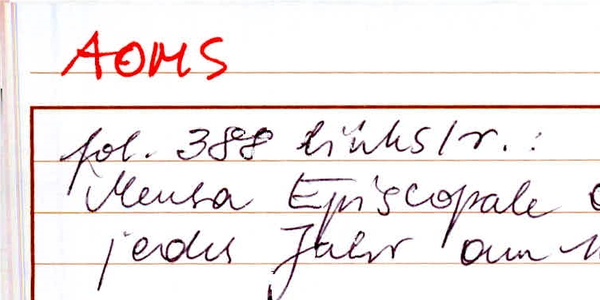 AOMS
fol. 388 links/r.:
Mensa Episcopale
jedes Jahr am